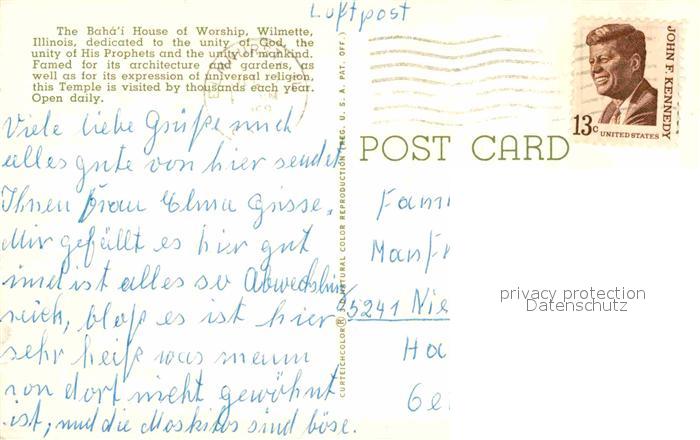 Luftpost
The Bahá'í House of Worship, Wilmette,
Illinois, dedicated to the unity of God, the
unity of His Prophets and the unity of mankind.
Famed for its architecture and gardens, as
well as for its expression of universal religion,
this Temple is visited by thousands each year.
Open daily.
Viele liebe Grüße und
alles gute von hier sendet
Ihnen Frau Elma Gusse.
Mir gefällt es hier gut
und ist alles so Abwechslun
reich, bloß es ist hier
sehr heiß was mann
von dort nicht gewöhnt
ist, und die Moskitos sind böse.
CURTEICHCOLOR® 3-D NATURAL COLOR REPRODUCTION (REG. U.S.A. PAT. OFF.)
POST CARD
JOHN F. KENNEDY
13c UNITED STATES
Fami
Manf
5241 Nie
Ha
Ge
privacy protection
Datenschutz